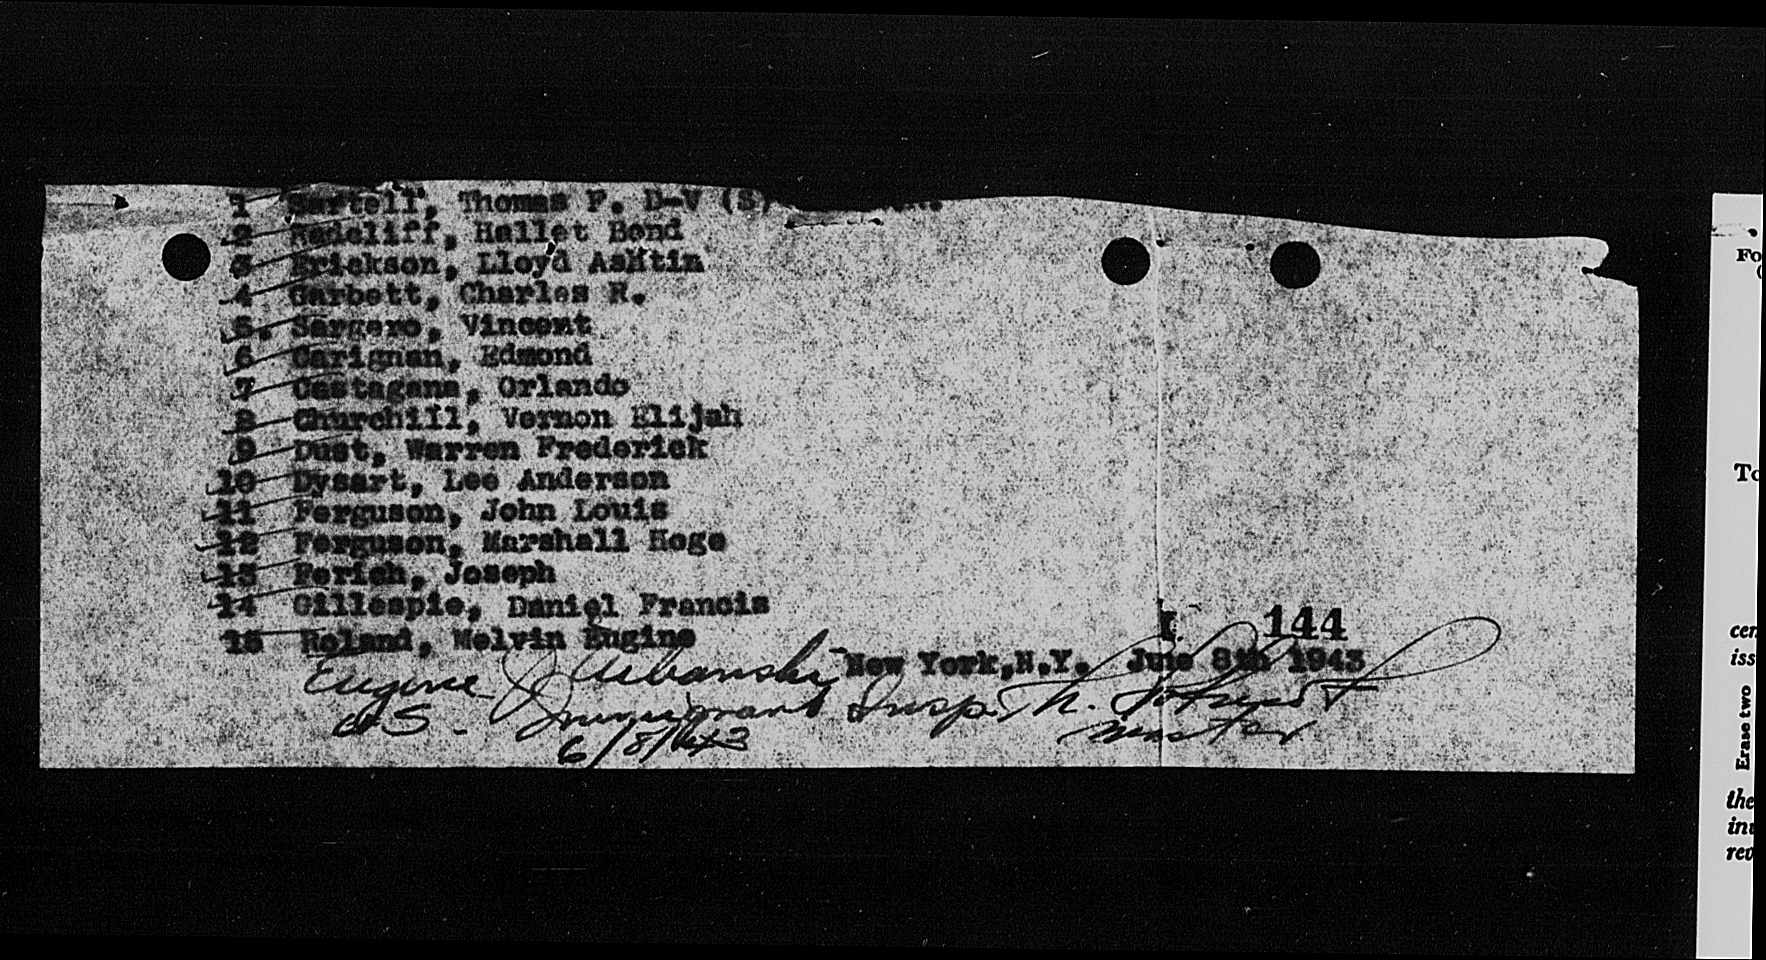 1 Bartell, Thomas F. D-V (S)
2 Radcliff, Hallet Bond
3 Erickson, Lloyd Ashtin
4 Garbett, Charles R.
5. Sargero, Vincent
6 Carignan, Edmond
7 Castagana, Orlando
8 Churchill, Vernon Elijah
9 Dust, Warren Frederick
10 Dysart, Lee Anderson
11 Ferguson, John Louis
12 Ferguson, Marshall Hoge
13 Ferich, Joseph
14 Gillespie, Daniel Francis
15 Roland, Melvin Engine
I 144
New York, N.Y. June 8th 1943
Eugene J Urbanski
US. Immigrant Insp.
Master
6/8/43
Fo
To
cer
iss
Erase two
the
inv
rev